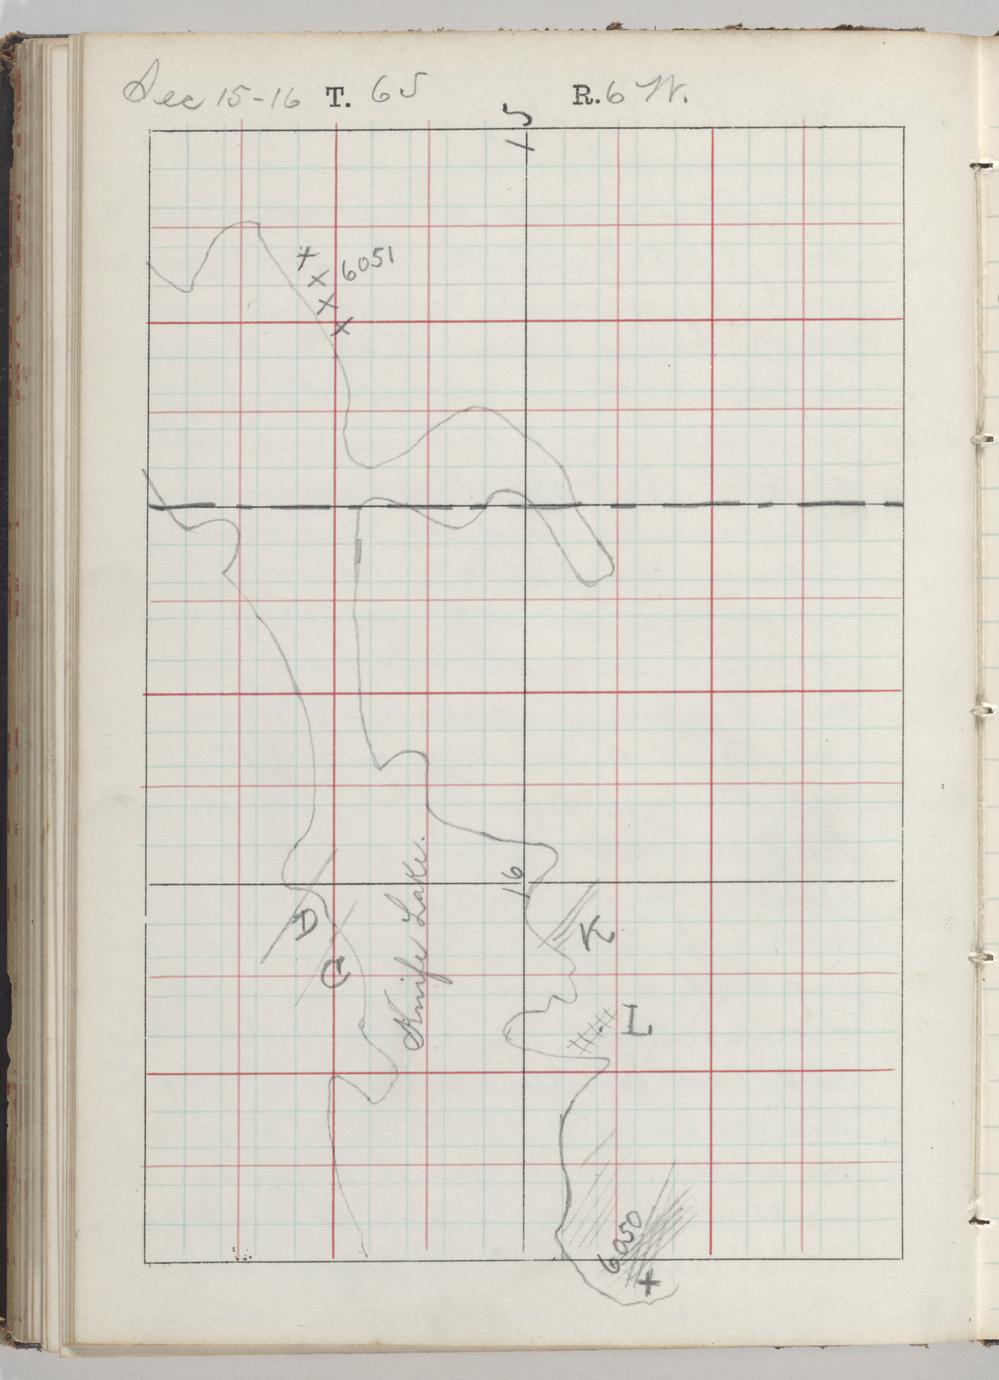 Sec 15-16 T. 65 R. 6 W.
15
6051
16
Knife Lake.
D
C
K
L
6050